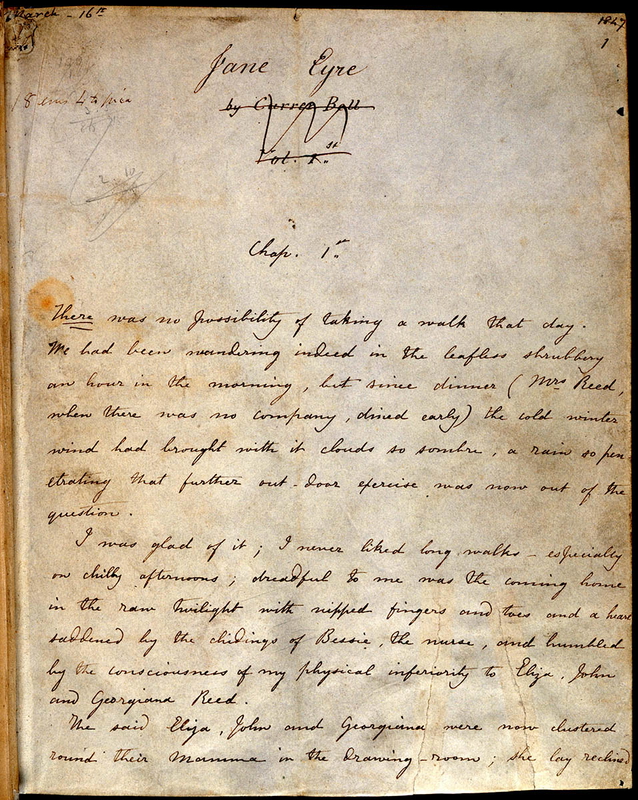 March - 16th
1847
1
Jane Eyre
by Currer Bell
Vol. 1.st
18 ems 4to pica
Chap. 1st
There was no possibility of taking a walk that day.
We had been wandering indeed in the leafless shrubbery
an hour in the morning, but since dinner (Mrs Reed,
when there was no company, dined early) the cold winter
wind had brought with it clouds so sombre, a rain so pen
etrating that further out-door exercise was now out of the
question.
I was glad of it; I never liked long walks - especially
on chilly afternoons; dreadful to me was the coming home
in the raw twilight with nipped fingers and toes and a heart
saddened by the chidings of Bessie, the nurse, and humbled
by the consciousness of my physical inferiority to Eliza, John
and Georgiana Reed.
The said Eliza, John and Georgiana were now clustered
round their Mamma in the drawing-room; she lay reclined